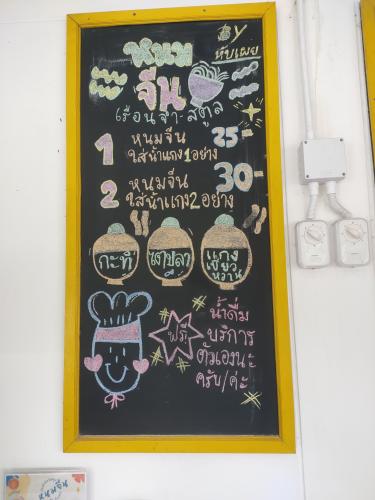 BY
หนม
ทับเผย
จีน
เรือนจำ-สตูล
1 หนมจีน 25-
ใส่น้ำแกง 1 อย่าง
2 หนมจีน 30-
ใส่น้ำแกง 2 อย่าง
กะทิ
ไตปลา
แกงเขียวหวาน
ฟรี
น้ำดื่ม
บริการ
ตัวเองนะ
ครับ/ค่ะ
หนมจีน